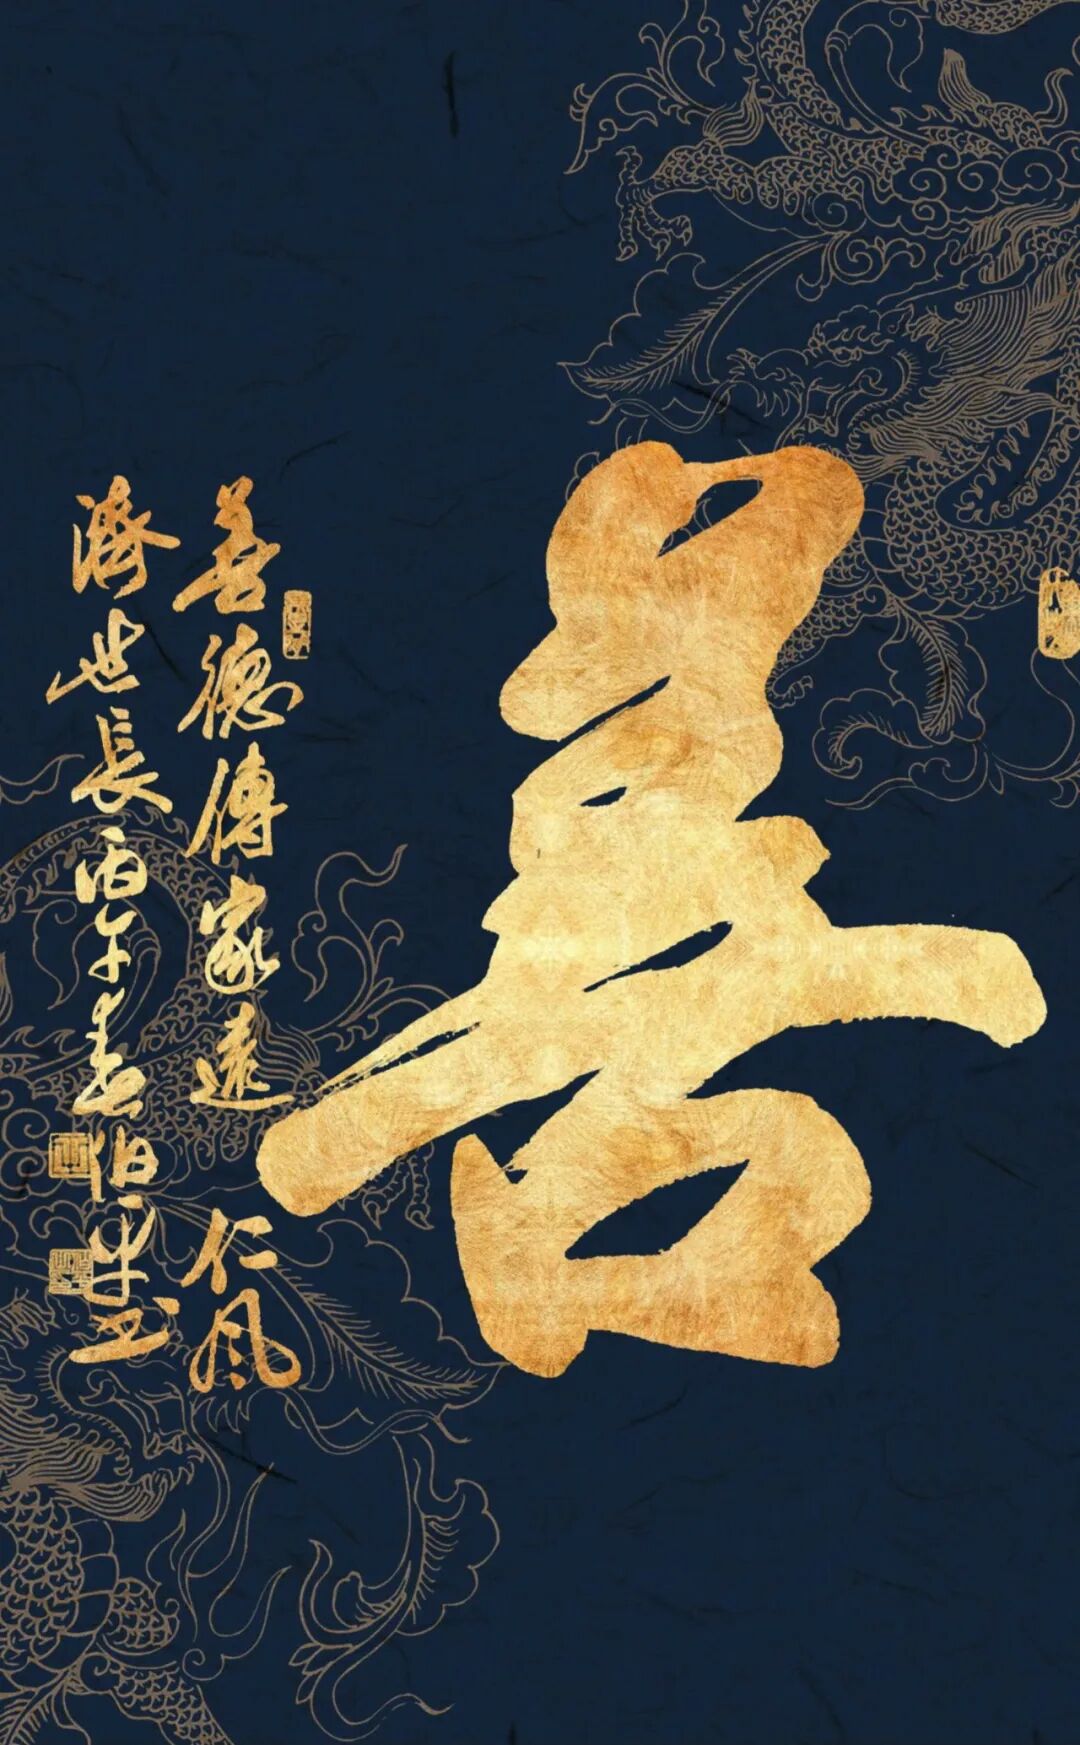 善
善德傳家遠 仁風
濟世長丙午春伯平书